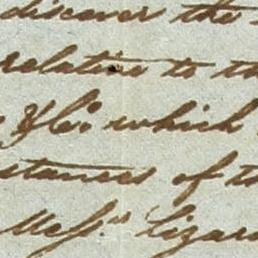 discover the
relative to th
& Co. which
stances of th
Mess.rs Lizar